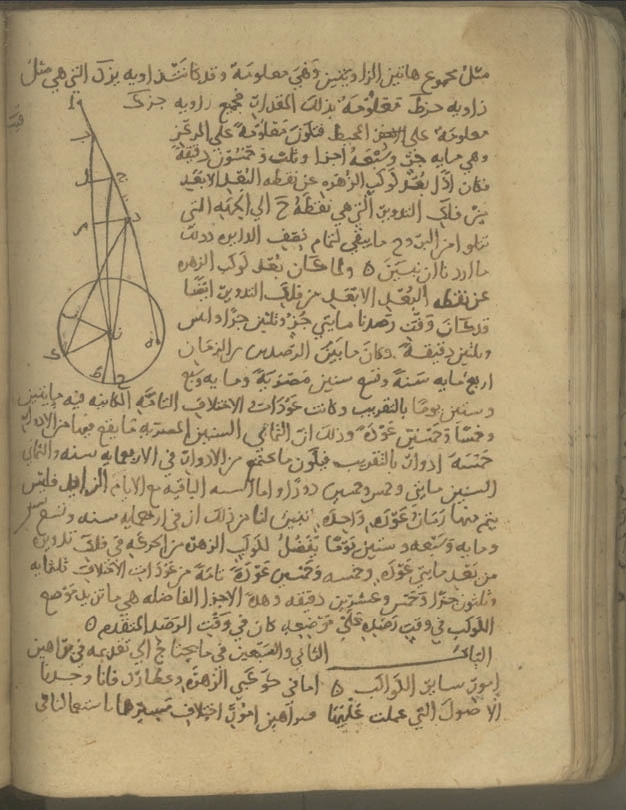 مثل مجموع هاتين الزاويتين وهي معلومة وقد كانت زاويه بزك التي هي مثل
زاويه حزط معلومة بذلك المقدار فجميع زاويه جزك
معلومة على المحيط فتكون معلومة على المركز
وهي مايه جزء وسبعه اجزا وثلث وخمسون دقيقة
فكان اذا بعد كوكب الزهره عن نقطه البعد الابعد
من فلك التدوير التي هي نقطة ح الى الجهة التي
تتلو من البروج ما يبقى لتمام نصف الدايره وذلك
ما اردنا ان نبين ٥ ولما كان بعد كوكب الزهره
عن نقطه البعد الابعد من فلك التدوير ايضا
قد كان وقت رصدنا مايتي جزء وثلثين جزءا واثنين
وثلثين دقيقة وكان ما بين الرصدين من الزمان
اربع مايه سنة وتسع سنين مصرية ومايه وسبع
وستين يوما بالتقريب وكانت عودات الاختلاف التامة الكائنه فيه مايتين
وخمسا وخمسين عودة وذلك ان الثماني السنين المصريه يقع فيها من الادوار
خمسة ادوار بالتقريب فيكون ما يجتمع من الادوار في الاربعمايه سنه والثماني
السنين مايتين وخمس وخمسين دورا واما السنه الباقيه مع الايام الزايده فليس
يتم فيها زمان عوده واحده تبين لنا من ذلك ان في اربعمايه سنه وتسع سنين
ومايه وسبعه وستين يوما يفضل لكوكب الزهرة من الحركه في فلك تدويره
من بعد مايتي عوده وخمسه وخمسين عودة تامة من عودات الاختلاف ثلثمايه
وثلثون جزءا وخمس وعشرين دقيقه وهذه الاجزا الفاضله هي ما تزيد موضع
الكوكب في وقت رصده على موضعه كان في وقت الرصد المتقدم ٥
الثاني والسبعين فيما يحتاج الى تقديمه في براهين
امور ساير الكواكب ٥ اما في كوكبي الزهره وعطارد فانا وجدنا
الاصول التي عملت عليها وبراهين امور اختلاف مسيرها باستعمالنا في